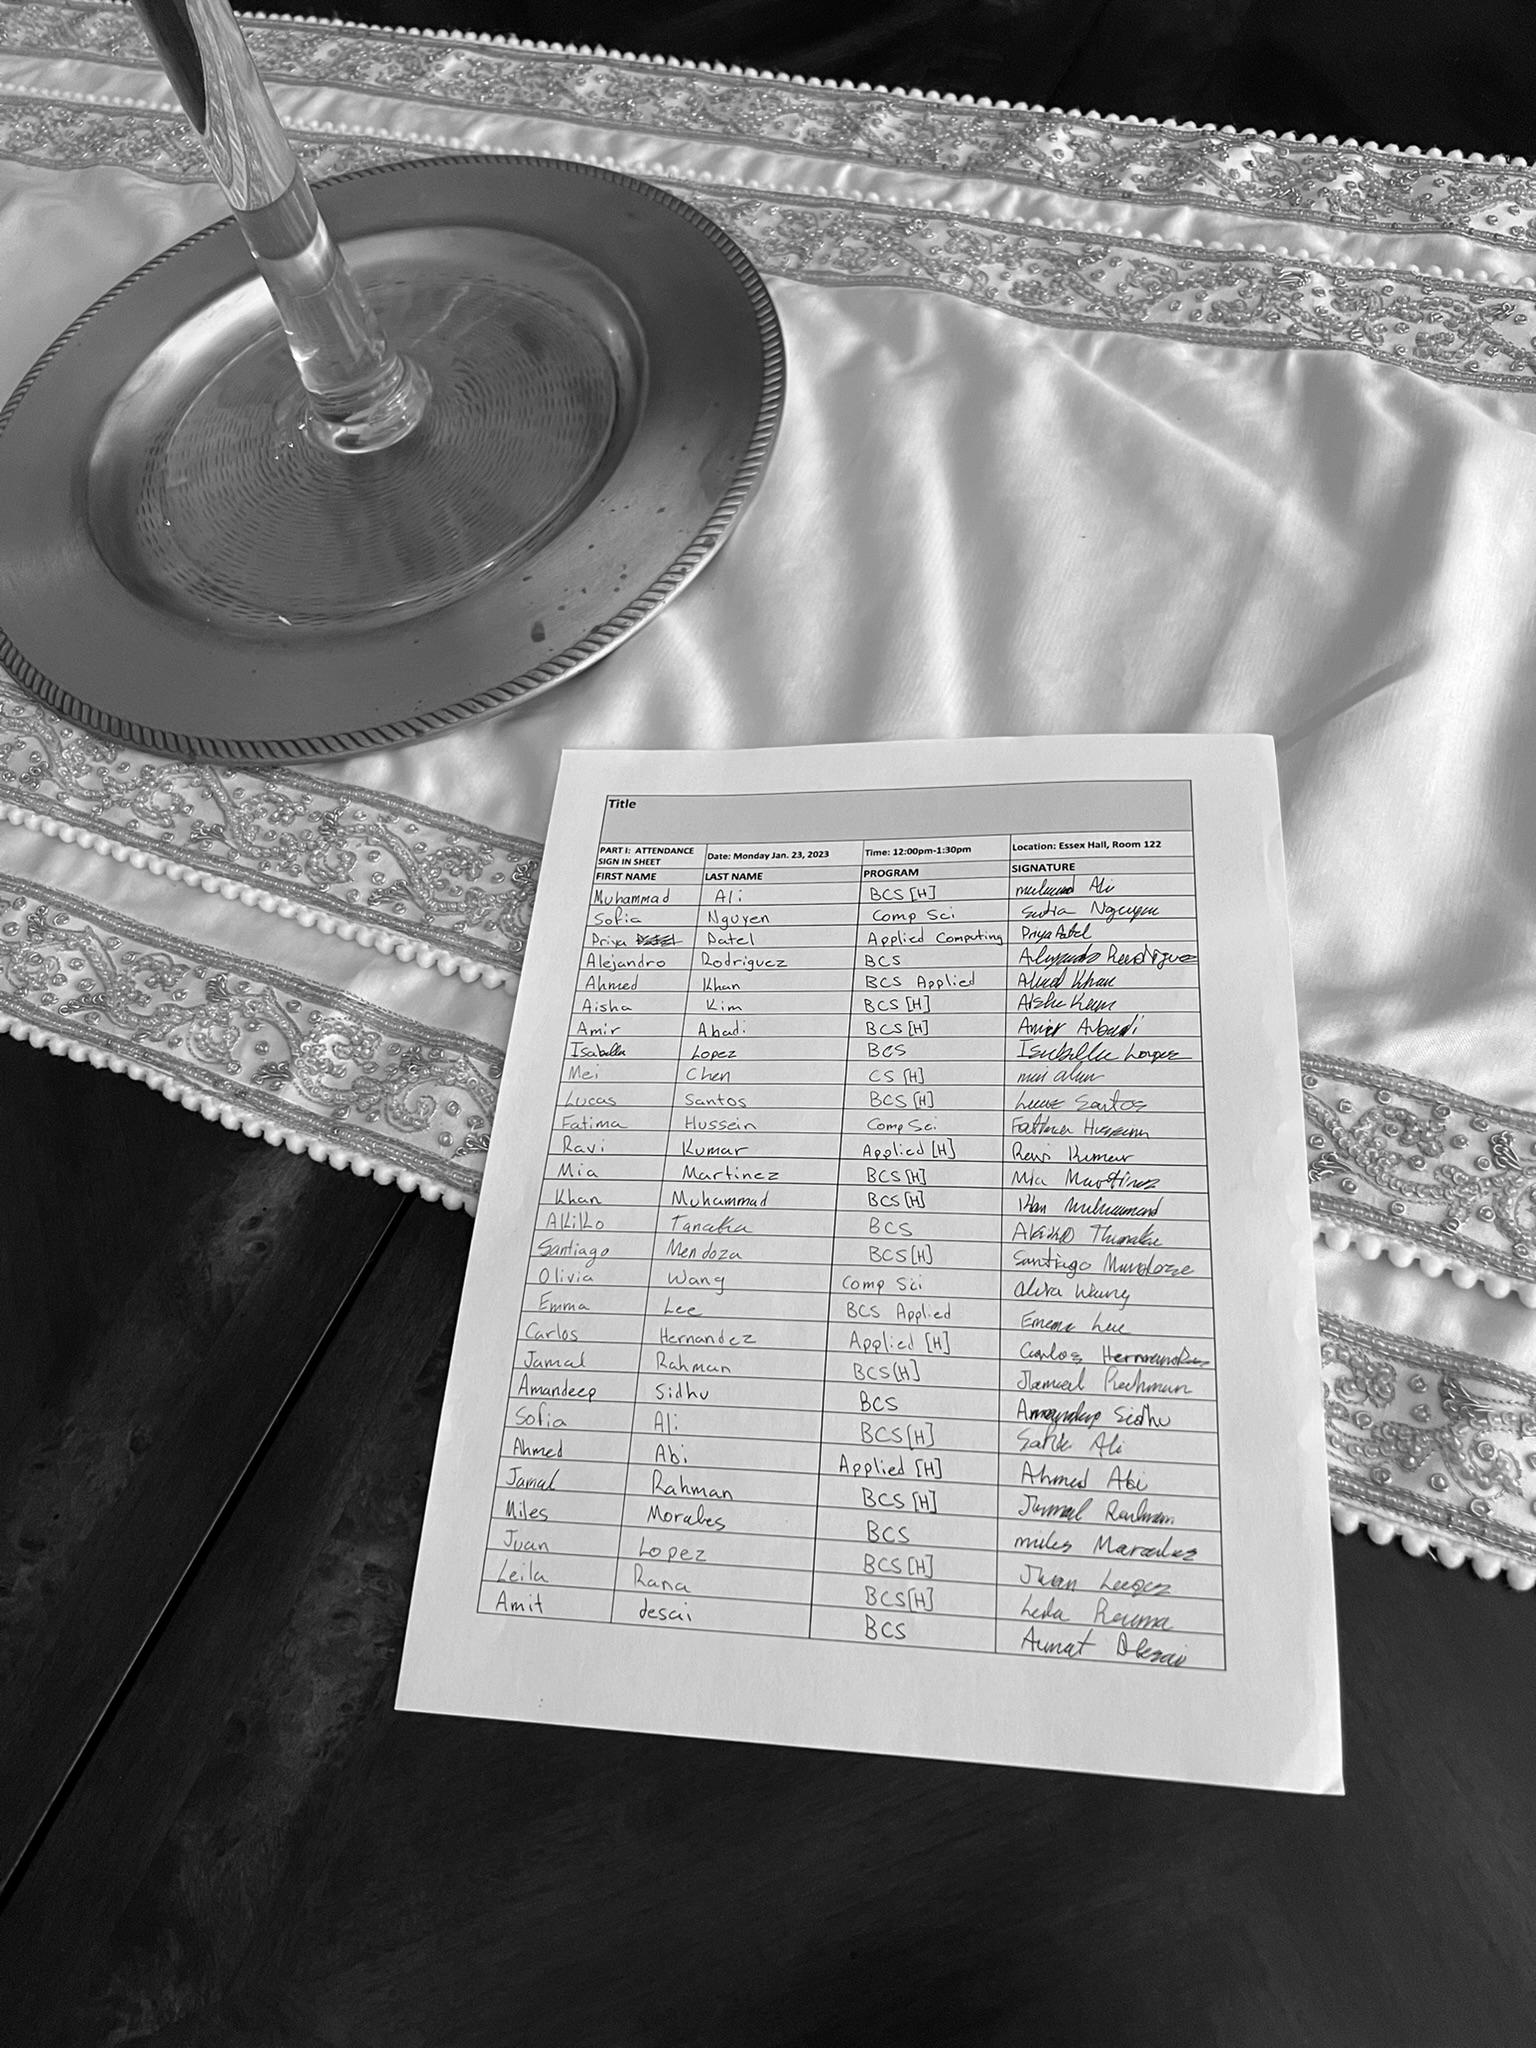 Title
PART I: ATTENDANCE SIGN IN SHEET Date: Monday Jan. 23, 2023 Time: 12:00pm-1:30pm Location: Essex Hall, Room 122
FIRST NAME LAST NAME PROGRAM SIGNATURE
Muhammad Ali BCS [H] Ali
Sofia Nguyen Comp Sci Nguyen
Priya Patel Applied Computing Priya Patel
Alejandro Rodriguez BCS Alejandro Rodriguez
Ahmed Khan BCS Applied Ahmed Khan
Aisha Kim BCS [H] Aisha
Amir Abadi BCS [H] Amir Abadi
Isabella Lopez BCS Isabella Lopez
Mei Chen CS [H] mei
Lucas Santos BCS [H] Lucas Santos
Fatima Hussein Comp Sci Fatima Hussein
Ravi Kumar Applied [H] Ravi Kumar
Mia Martinez BCS [H] Mia Martinez
Khan Muhammad BCS [H] Khan Muhammad
Akiko Tanaka BCS Akiko
Santiago Mendoza BCS [H] Santiago Mendoza
Olivia Wang Comp Sci Olivia Wang
Emma Lee BCS Applied Emma Lee
Carlos Hernandez Applied [H] Carlos Hernandez
Jamal Rahman BCS [H] Jamal Rahman
Amandeep Sidhu BCS Amandeep Sidhu
Sofia Ali BCS [H] Ali
Ahmed Abi Applied [H] Ahmed Abi
Jamal Rahman BCS [H] Jamal Rahman
Miles Morales BCS miles Morales
Juan Lopez BCS [H] Juan Lopez
Leila Rana BCS [H] Leila
Amit desai BCS Desai